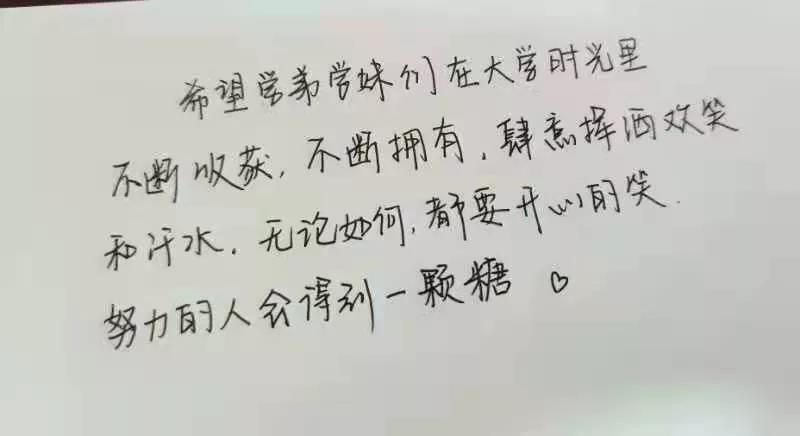 希望学弟学妹们在大学时光里
不断收获，不断拥有，肆意挥洒欢笑
和汗水，无论如何，都要开心的笑.
努力的人会得到一颗糖 ♡